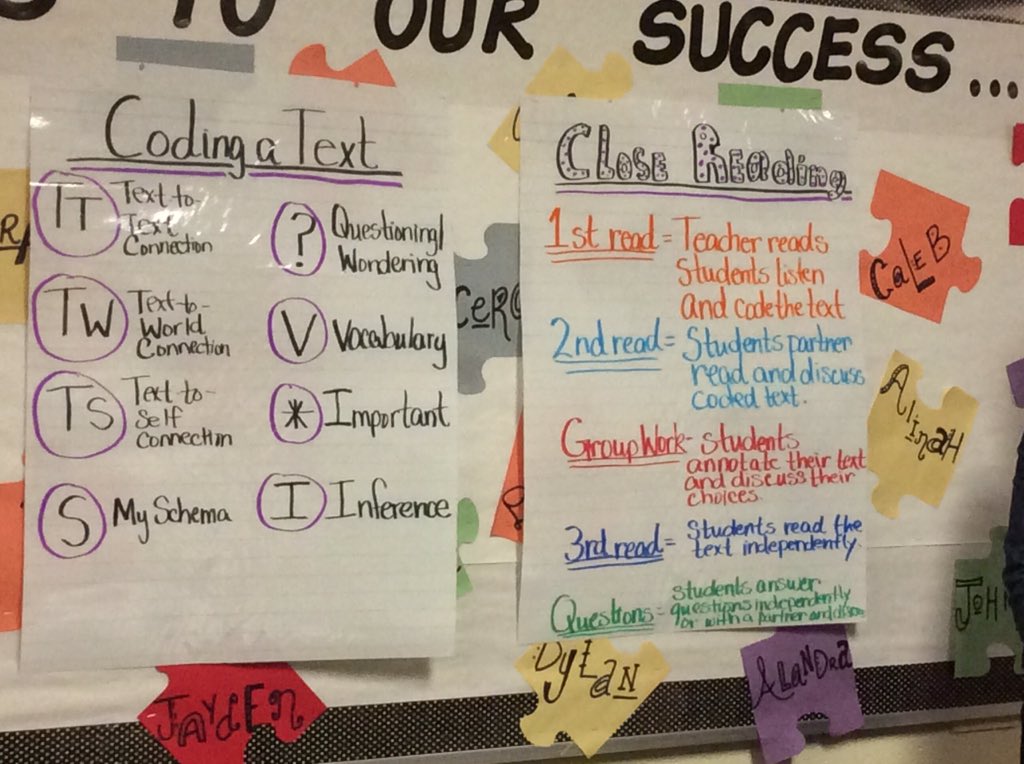 TO OUR SUCCESS...
Coding a Text
TT Text-to-
Text
Connection
TW Text-to-
World
Connection
TS Text-to-
Self
Connection
S My Schema
? Questioning/
Wondering
V Vocabulary
* Important
I Inference
Close Reading
1st read = Teacher reads
Students listen
and code the text
2nd read = Students partner
read and discuss
coded text.
Group Work - students
annotate their text
and discuss their
choices.
3rd read = Students read the
text independently.
Questions = students answer
questions independently
or with a partner and
CaLEB
ALinaH
JOH
JAYdEn
DyLaN
ALaNdRa